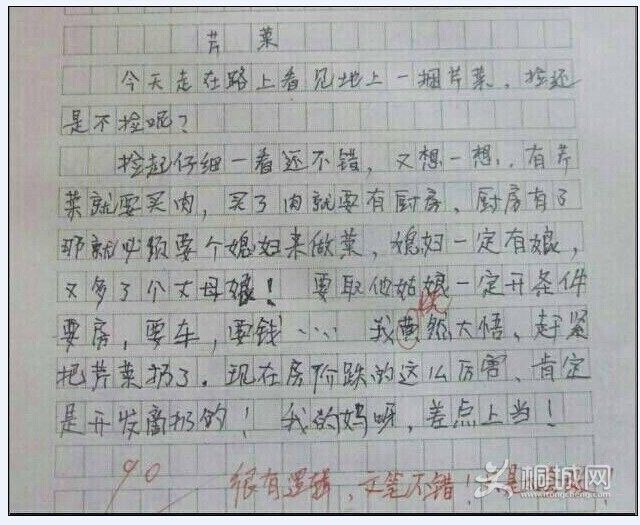 芹菜
今天走在路上看见地上一捆芹菜，捡还
是不捡呢？
捡起仔细一看还不错，又想一想，有芹
菜就要买肉，买了肉就要有厨房、厨房有了
那就必须要个媳妇来做菜，媳妇一定有娘，
又多了个丈母娘！要取他姑娘一定开条件
要房，要车，要钱……我黄然大悟、赶紧
恍
把芹菜扔了。现在房价跌的这么厉害、肯定
是开发商扔的！我的妈呀，差点上当！
90 很有逻辑，文笔不错！
桐城网
www.itongcheng.com